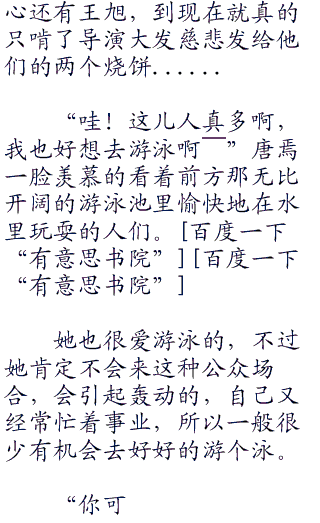 心还有王旭，到现在就真的
只啃了导演大发慈悲发给他
们的两个烧饼......
“哇！这儿人真多啊，
我也好想去游泳啊——”唐焉
一脸羡慕的看着前方那无比
开阔的游泳池里愉快地在水
里玩耍的人们。[百度一下
“有意思书院”][百度一下
“有意思书院”]
她也很爱游泳的，不过
她肯定不会来这种公众场
合，会引起轰动的，自己又
经常忙着事业，所以一般很
少有机会去好好的游个泳。
“你可